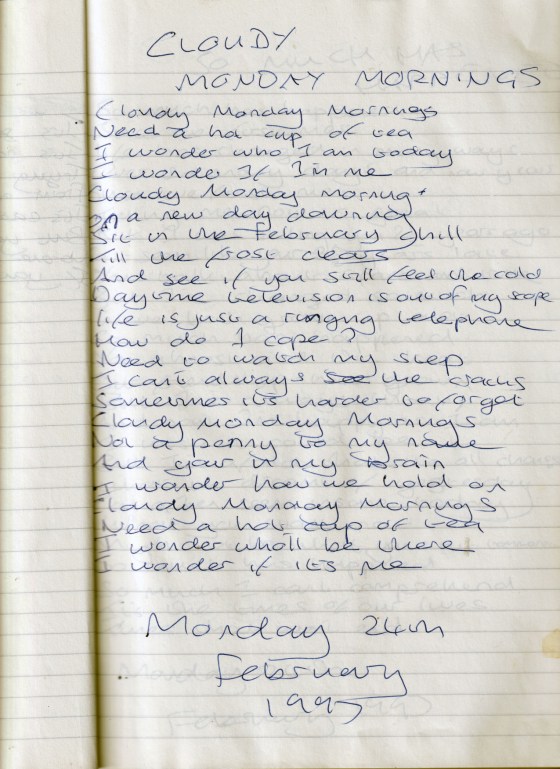 CLOUDY
MONDAY MORNINGS
Cloudy Monday Mornings
Need a hot cup of tea
I wonder who I am today
I wonder If I'm me
Cloudy Monday morning
on a new day dawning
Sit in the February chill
Till the frost clears
And see if you still feel the cold
Daytime television is out of my scope
life is just a ringing telephone
How do I cope?
Need to watch my step
I can't always see the cracks
Sometimes its harder to forget
Cloudy Monday Mornings
Not a penny to my name
And your in my brain
I wonder how we hold on
Cloudy Monday Mornings
Need a hot cup of tea
I wonder who'll be there
I wonder if its me
Monday 24th
February
1997